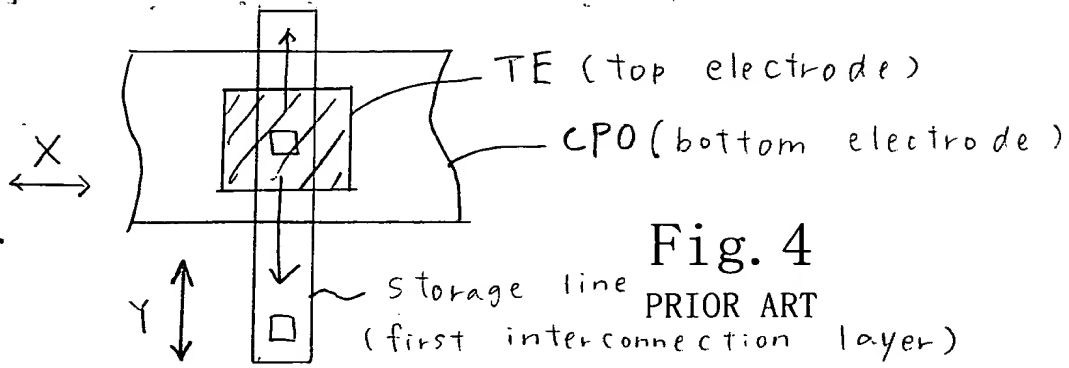 TE (top electrode)
CPO (bottom electrode)
X
Fig. 4
Y
storage line
PRIOR ART
(first interconnection layer)